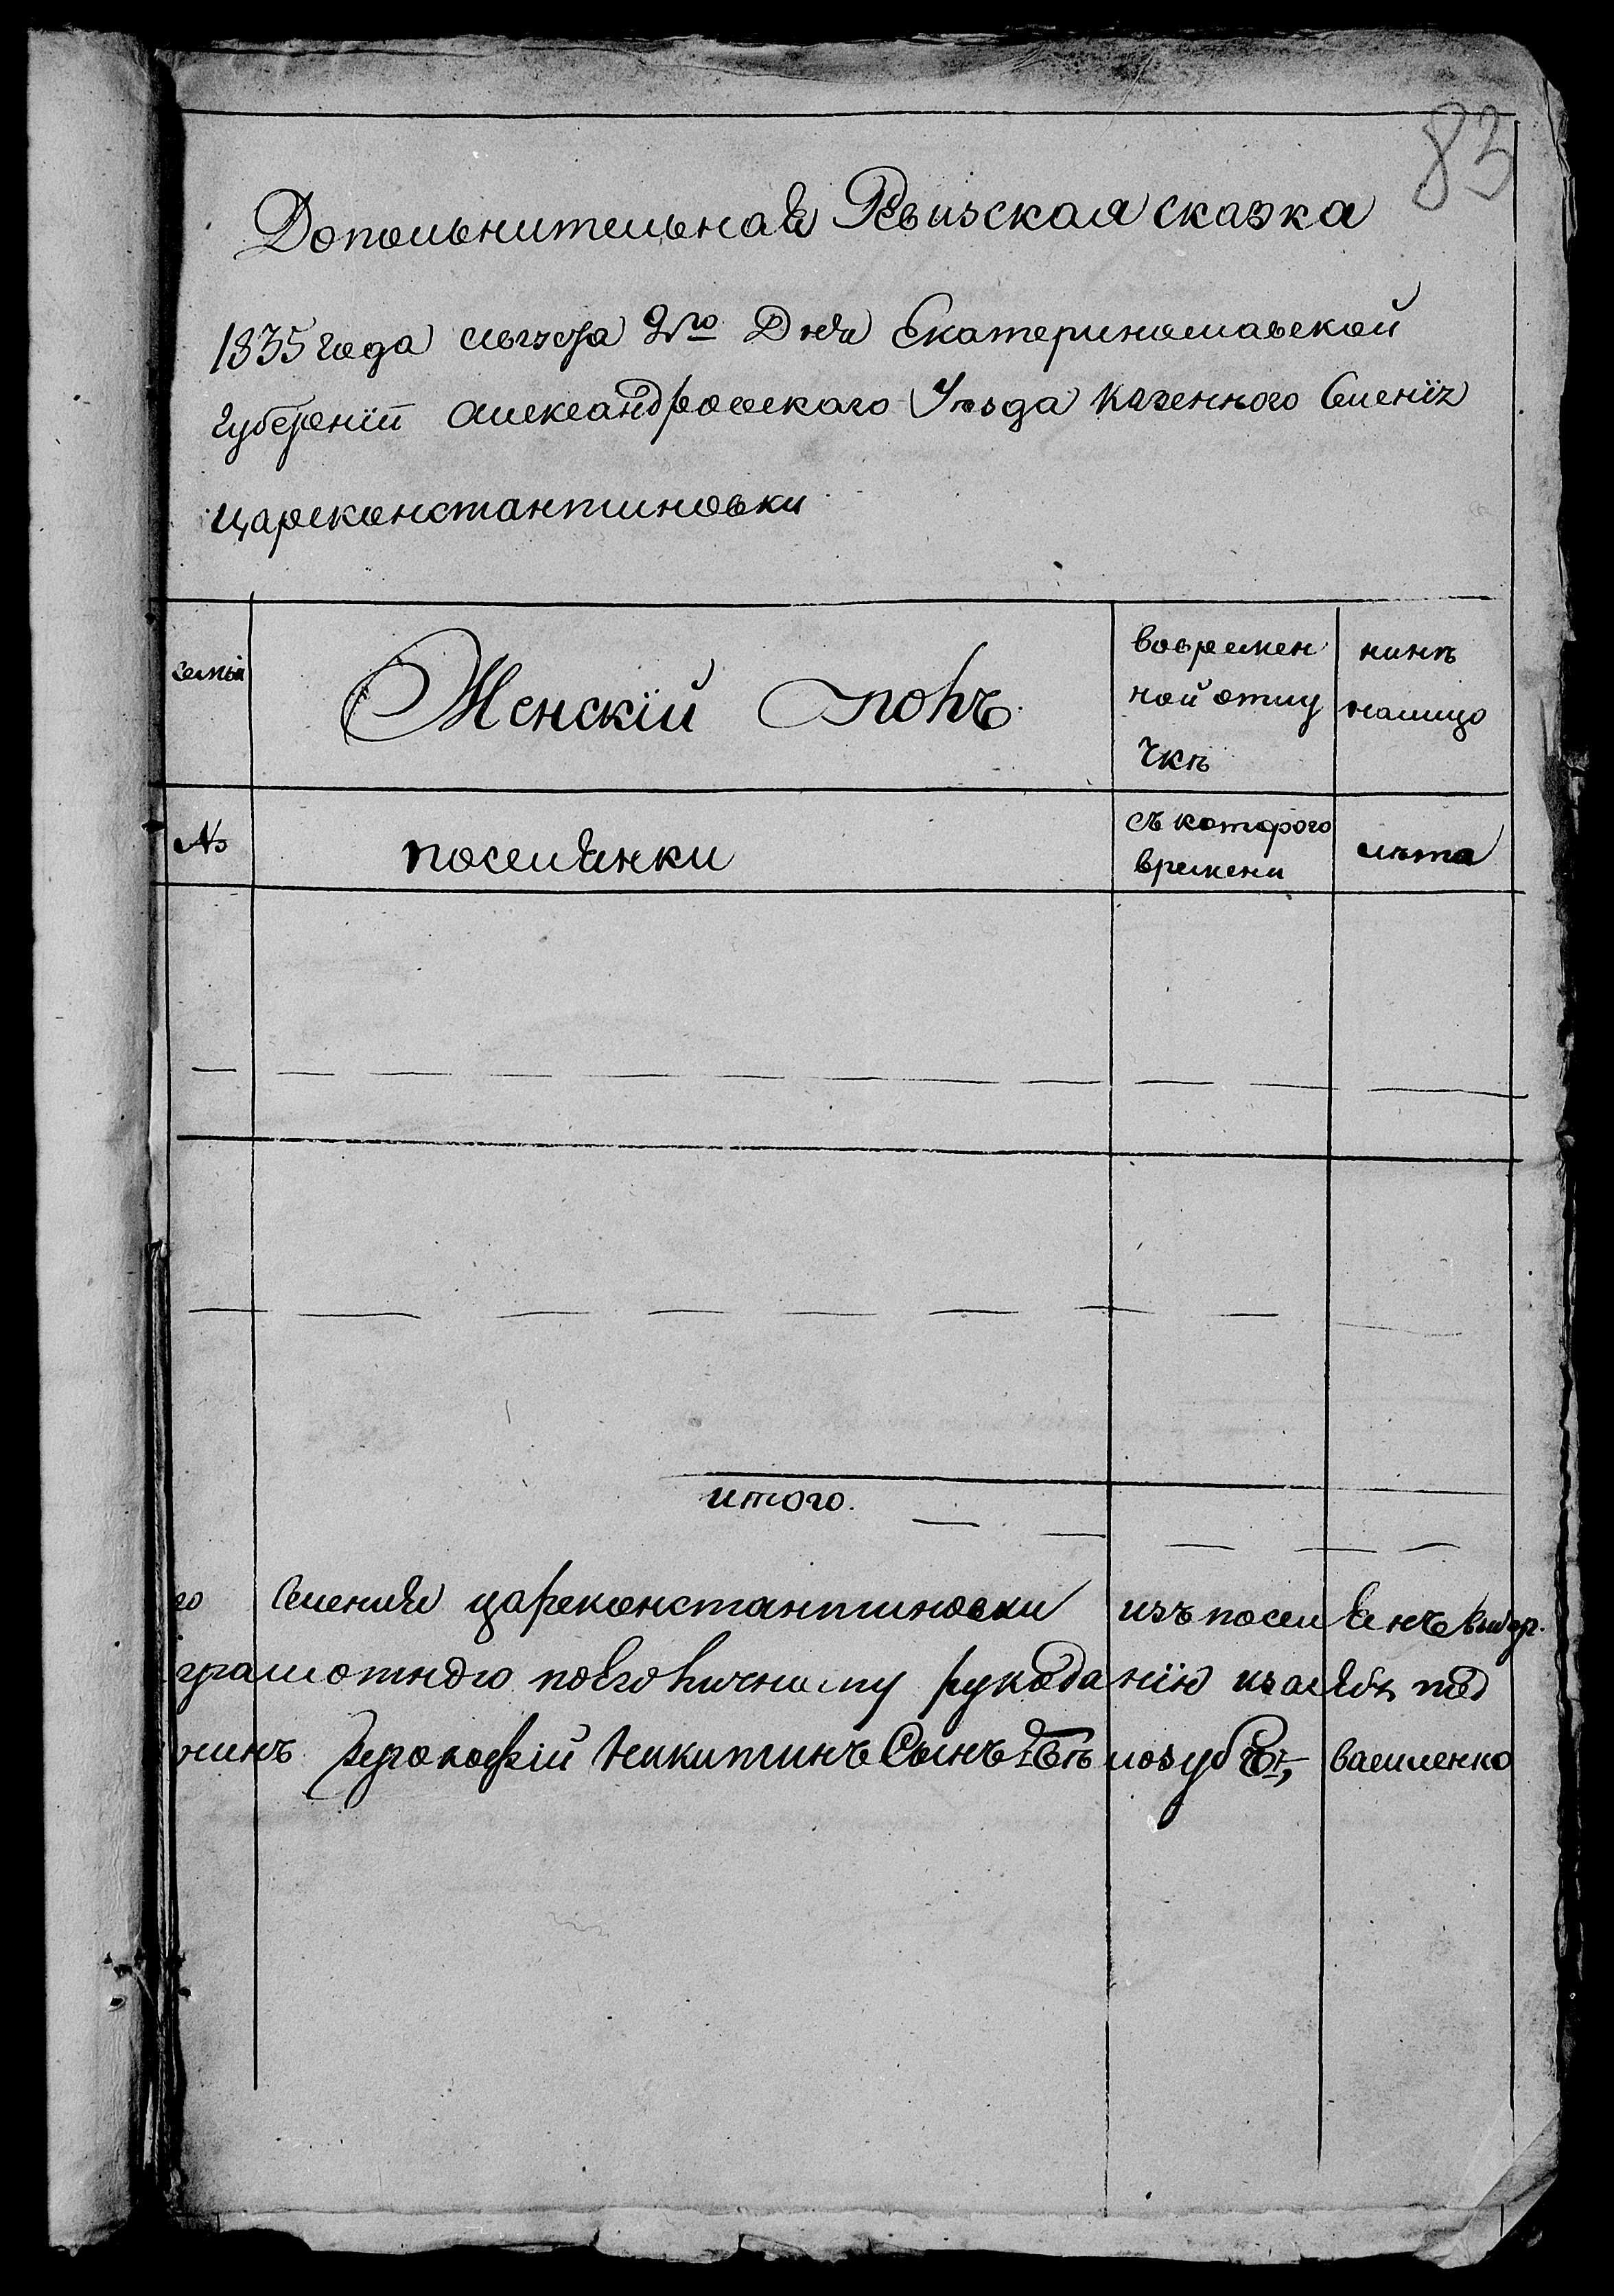 83
Дополнительная Ревизская сказка
1835 года августа 2го Дня Екатеринославской
губернїи александровского Уезда казенного Селенїя
цареконстантиновки
семьи
Женскїй полъ
вовремен
ной отлу
чкѣ
нинѣ
налицо
№
поселянки
съ которого
времени
лѣта
итого.
го Селения цареконстантиновки изъ поселянъ выбор.
грамотного поего личному рукоданїю изаебя под
нинъ Прокофїй Никитинъ Сынъ василенко